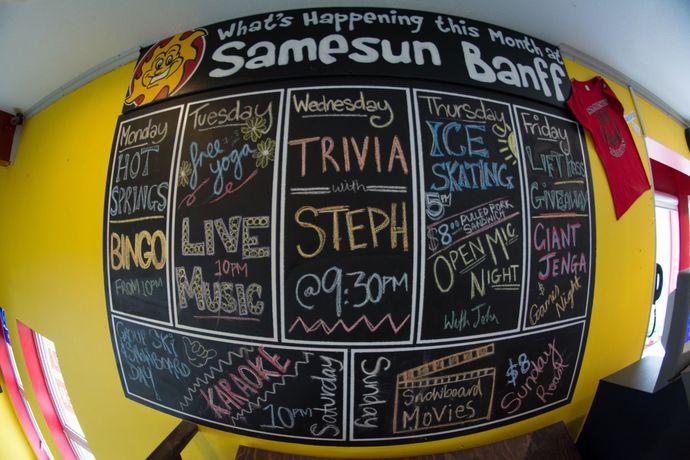 What's Happening this Month at
Samesun Banff
Monday
HOT
SPRINGS
BINGO
FROM 10PM
Tuesday
free
yoga
LIVE
10PM
MUSIC
Wednesday
TRIVIA
with
STEPH
@9:30PM
Thursday
ICE
SKATING
5PM
$8.00 PULLED PORK
SANDWICH
OPEN MIC
NIGHT
With John
Friday
LIFT PASS
GIVEAWAY
GIANT
JENGA
$
Games
Night
GROUP SKI
SNOWBOARD
DAY
KARAOKE
10PM
Saturday
Sunday
Snowboard
Movies
$8
Sunday
Roast